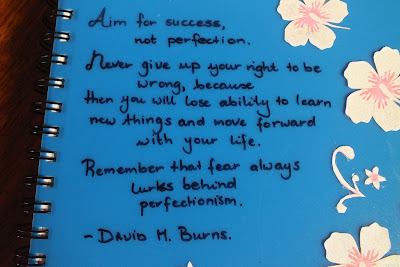 Aim for success,
not perfection.
Never give up your right to be
wrong, because
then you will lose ability to learn
new things and move forward
with your life.
Remember that fear always
lurks behind
perfectionism.
- David M. Burns.